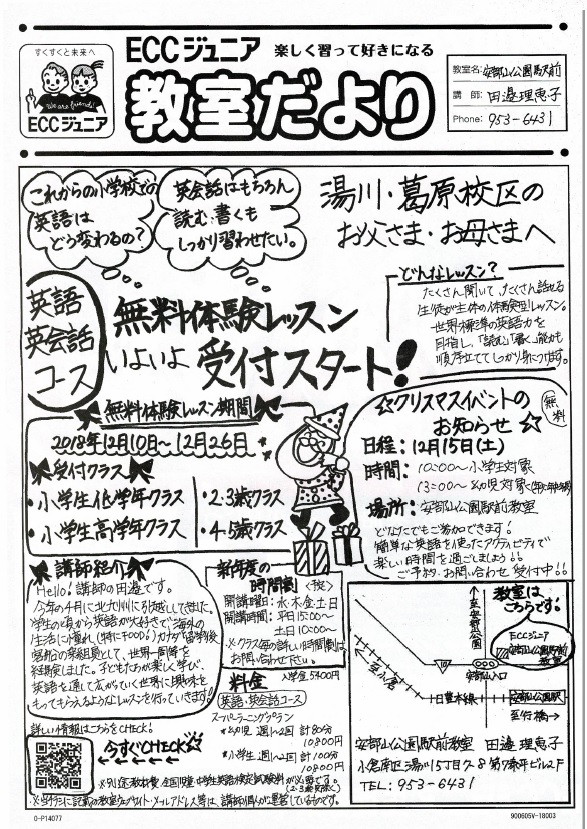 すくすくと未来へ
We are friends!
ECCジュニア
ECCジュニア 楽しく習って好きになる
教室だより
教室名: 安部山公園駅前
講 師: 田邉理恵子
Phone: 953-6431
これからの小学校での
英語は
どう変わるの?
英会話はもちろん
読む・書くも
しっかり習わせたい。
湯川・葛原校区の
お父さま・お母さまへ
英語
英会話
コース
無料体験レッスン
いよいよ 受付スタート!
どんなレッスン?
たくさん聞いて、たくさん話せる
生徒が主体の体験型レッスン。
世界標準の英語力を
目指し、「読む」「書く」能力も
順序立ててしっかり身につけます。
無料体験レッスン期間
2018年12月10日〜12月26日
受付クラス
・小学生低学年クラス
・小学生高学年クラス
・2・3歳クラス
・4・5歳クラス
☆クリスマスイベントの
お知らせ☆
無料
日程:12月15日(土)
時間:10:00〜小学生対象
13:00〜幼児対象
場所:安部山公園駅前教室
どなたでもご参加できます!
簡単な英語を使ったアクティビティで
楽しい時間を過ごしましょう!!
ご予約・お問い合わせ 受付中!!
講師紹介
Hello! 講師の田邉です。
今年の4月に北九州に引越してきました。
学生の頃から英語が大好きで、海外の
生活に憧れ、(特にFOOD!)カナダ留学後
客船の乗組員として、世界一周等を
経験しました。子どもたちが楽しく学び、
英語を通して広がっていく世界に興味を
もってもらえるようなレッスンを行っていきます!
新年度の
時間割
開講曜日:水・木・金・土・日
開講時間:平日15:00〜
土日10:00〜
※クラス毎の詳しい時間割は
お問い合わせ下さい。
料金 入学金5400円
英語・英会話コース
スーパーラーニングプラン
*幼児 週1〜2回 計80分
10800円
*小学生 週1〜2回 計100分
10800円
詳しい情報はこちらをCHECK!
今すぐCHECK☆
※別途教材費、全国児童中学生英語検定試験料が必要です。
(2・3歳児除く)
教室は
こちらです!
ECCジュニア
安部山公園駅前
教室
至安部山公園
至小倉
安部山入口
日豊本線
安部山公園駅
至行橋→
安部山公園駅前教室 田邉 理恵子
小倉南区湯川5丁目7-8第7泰平ビル2F
TEL: 953-6431
O-P14077
900605V-18003